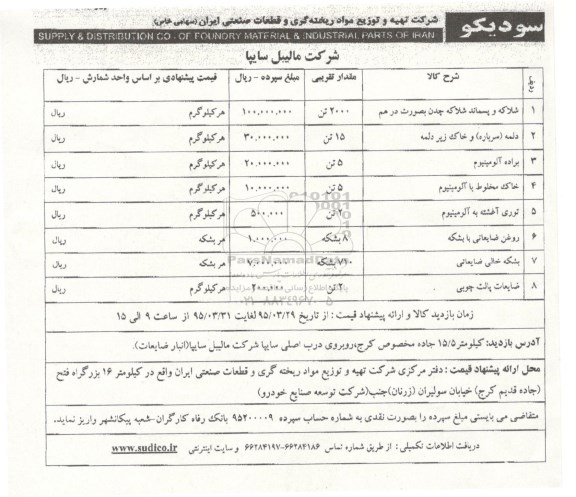 سودیکو
شرکت تهیه و توزیع مواد ریخته‌گری و قطعات صنعتی ایران (سهامی خاص)
SUPPLY & DISTRIBUTION CO - OF FOUNDRY MATERIAL & INDUSTRIAL PARTS OF IRAN
شرکت مالیبل سایپا
ردیف شرح کالا مقدار تقریبی مبلغ سپرده - ریال قیمت پیشنهادی بر اساس واحد شمارش - ریال
۱ شلاکه و پسماند شلاکه چدن بصورت در هم ۲۰۰۰ تن ۱۰۰.۰۰۰.۰۰۰ هر کیلوگرم ریال
۲ دلمه (سرباره) و خاک زیر دلمه ۱۵ تن ۳۰.۰۰۰.۰۰۰ هر کیلوگرم ریال
۳ براده آلومینیوم ۵ تن ۲۰.۰۰۰.۰۰۰ هر کیلوگرم ریال
۴ خاک مخلوط با آلومینیوم ۵ تن ۱۰.۰۰۰.۰۰۰ هر کیلوگرم ریال
۵ توری آغشته به آلومینیوم تن ۵۰۰.۰۰۰ هر کیلوگرم ریال
۶ روغن ضایعاتی با بشکه ۸ بشکه ۱.۰۰۰.۰۰۰ هر بشکه ریال
۷ بشکه خالی ضایعاتی ۷۱ بشکه هر بشکه ریال
۸ ضایعات پالت چوبی تن ۲۰۰.۰۰۰ هر کیلوگرم ریال
زمان بازدید کالا و ارائه پیشنهاد قیمت : از تاریخ ۹۵/۰۳/۲۹ لغایت ۹۵/۰۳/۳۱ از ساعت ۹ الی ۱۵
آدرس بازدید: کیلومتر ۱۵/۵ جاده مخصوص کرج،روبروی درب اصلی سایپا شرکت مالیبل سایپا(انبار ضایعات).
محل ارائه پیشنهاد قیمت : دفتر مرکزی شرکت تهیه و توزیع مواد ریخته گری و قطعات صنعتی ایران واقع در کیلومتر ۱۶ بزرگراه فتح
(جاده قدیم کرج) خیابان سولیران (زرنان)جنب(شرکت توسعه صنایع خودرو)
متقاضی می بایستی مبلغ سپرده را بصورت نقدی به شماره حساب سپرده ۹۵۲۰۰۰۰۹ بانک رفاه کارگران-شعبه پیکانشهر واریز نماید.
دریافت اطلاعات تکمیلی : از طریق شماره تماس ۶۶۲۸۴۱۸۶-۶۶۲۸۴۱۹۷ و سایت اینترنتی www.sudico.ir